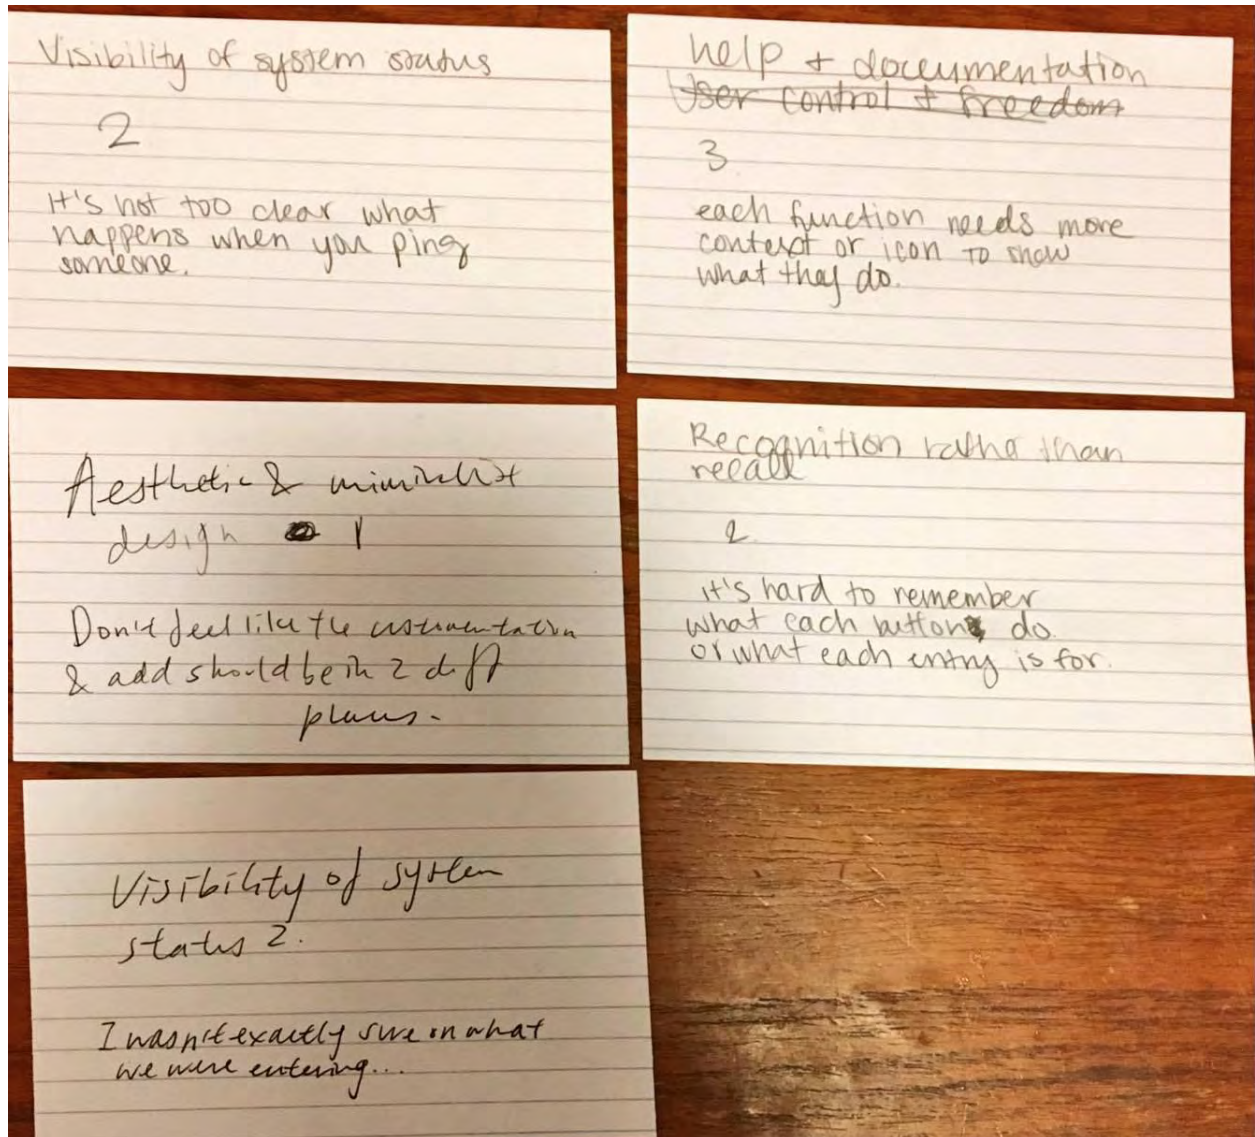 Visibility of system status
2
It's not too clear what
happens when you ping
someone.
help + documentation
User control + freedom
3
each function needs more
context or icon to show
what they do.
Aesthetic & minimalist
design 1
Don't feel like the
& add should be in 2 diff
places.
Recognition rather than
recall
2
it's hard to remember
what each button do
or what each entry is for.
Visibility of system
status 2.
I wasn't exactly sure on what
we were entering...